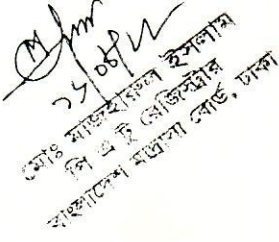 ১৯/০৪/২২
মোঃ মাজহারুল ইসলাম
পি এ টু রেজিস্ট্রার
বাংলাদেশ মাদ্রাসা বোর্ড, ঢাকা